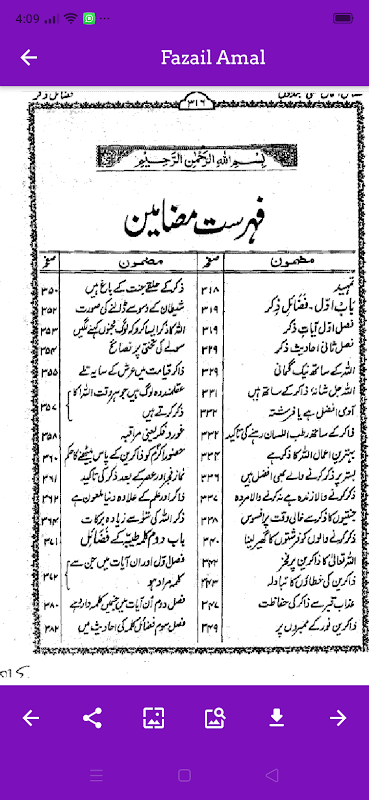 4:09
Fazail Amal
فضائل ذکر
۳۱۶
بِسْمِ اللهِ الرَّحْمٰنِ الرَّحِيْمِ
فہرست مضامین
مضمون صفحہ مضمون صفحہ
تمہید ۳۱۸
باب اوّل - فضائل ذکر ۳۱۹
فصل اوّل آیات ذکر ۳۱۹
فصل ثانی احادیث ذکر ۳۲۹
اللہ کے ساتھ نیک گمانی ۳۲۹
اللہ جل شانہٗ ذاکر کے ساتھ ہیں ۳۳۱
آدمی افضل ہے یا فرشتہ ۳۳۲
ذاکر کے ساتھ رطب اللسان رہنے کی تاکید ۳۳۲
بہترین اعمال اللہ کا ذکر ہے ۳۳۴
بستر پر ذکر کرنے والے بھی افضل ہیں ۳۳۶
ذکر کرنے والا زندہ ہے نہ کرنے والا مردہ ۳۳۷
جنتیوں کا ذکر سے خالی وقت پر افسوس ۳۳۸
ذکر کرنے والوں کو فرشتوں کا گھیر لینا ۳۴۰
اللہ تعالیٰ کا ذاکرین پر فخر ۳۴۲
ذاکرین کی خطاؤں کا تبادلہ ۳۴۳
عذاب قبر سے ذاکر کی حفاظت ۳۴۷
ذاکرین نور کے ممبروں پر ۳۴۹
ذکر کے حلقے جنت کے باغ ہیں ۳۵۰
شیطان کے وسوسے ڈالنے کی صورت ۳۵۲
اللہ کا ذکر ایسا کرو کہ لوگ مجنوں کہنے لگیں ۳۵۳
سونے کی تختی پر نصائح ۳۵۴
ذاکر قیامت میں عرش کے سایہ تلے ۳۵۵
عقلمند وہ لوگ ہیں جو ہر وقت اللہ کا
ذکر کرتے ہیں ۳۵۷
غور و فکر یعنی مراقبہ ۳۵۸
حضور اکرم کو ذاکرین کے پاس بیٹھنے کا حکم ۳۶۰
نماز فجر اور عصر کے بعد ذکر کی تاکید ۳۶۱
ذاکر اور علم کے علاوہ دنیا ملعون ہے ۳۶۲
ذکر اللہ کی سو سے زیادہ برکات ۳۶۴
باب دوم کلمہ طیبہ کے فضائل ۳۷۱
فصل اوّل اور ان آیات میں جن سے
کلمہ مراد ہو ۳۷۲
فصل دوم اُن آیات میں جنمیں کلمہ وارد ہے ۳۸۰
فصل سوم فضائل کلمہ کی احادیث میں ۳۸۲